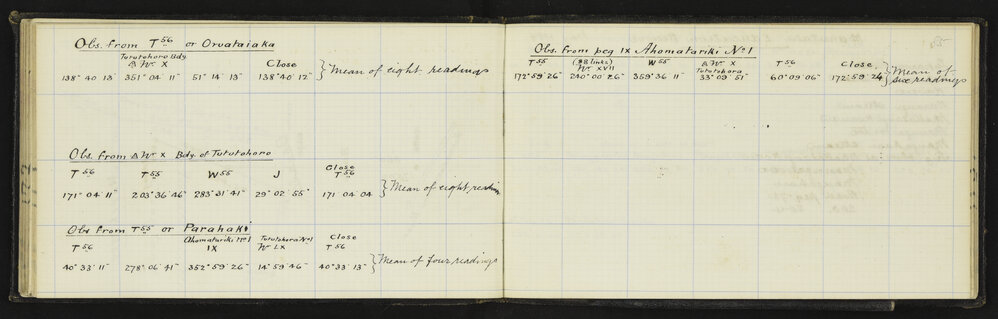 Obs. from T 56 or Orvataiaka
Tututohoro Bdy Close
△ Wr X
138° 40' 13" 351° 04' 11" 51° 14' 13" 138° 40' 12" } Mean of eight readings
Obs. from △ Wr X Bdy. of Tututohoro
Close
T 56 T 55 W 55 J T 56
171° 04' 11" 203° 36' 46" 283° 31' 41" 29° 02' 55" 171 04 04 } Mean of eight readin
Obs from T 55 or Parahaki
Ahomatariki No 1 Tututohora No 1 Close
T 56 IX Wr LX T 56
40° 33' 11" 278° 06' 41" 352° 59' 26" 14° 59' 46" 40° 33' 13" } Mean of four readings
55
Obs. from peg IX Ahomatariki No 1
T 55 (98 links) W 55 △ Wr X T 56 Close
Wr XVII Tututohora
172° 59' 26" 240° 00' 26" 359° 36' 11" 33° 09' 51" 60° 09' 06" 172° 59' 24" } Mean of
six readings